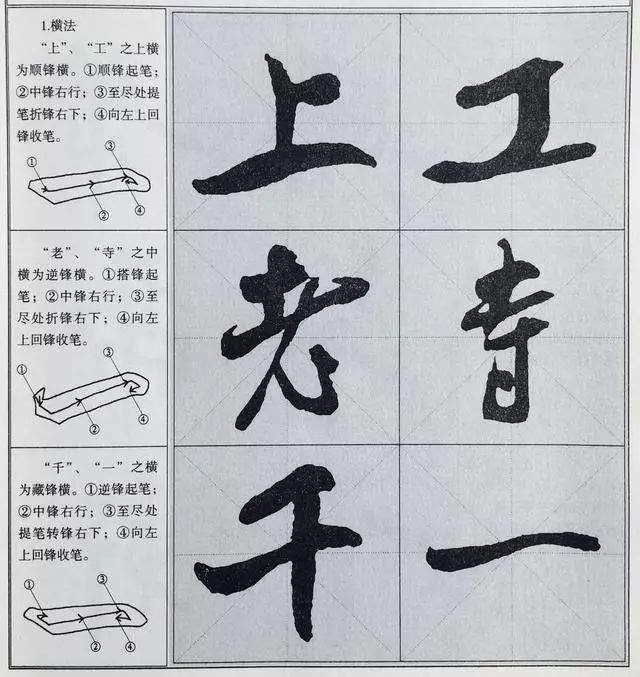 1.横法
“上”、“工”之上横
为顺锋横。①顺锋起笔；
②中锋右行；③至尽处提
笔折锋右下；④向左上回
锋收笔。
①
③
②
④
上
工
“老”、“寺”之中
横为逆锋横。①搭锋起
笔；②中锋右行；③至
尽处折锋右下；④向左
上回锋收笔。
①
③
②
④
老
寺
“千”、“一”之横
为藏锋横。①逆锋起笔；
②中锋右行；③至尽处
提笔转锋右下；④向左
上回锋收笔。
①
③
②
④
千
一